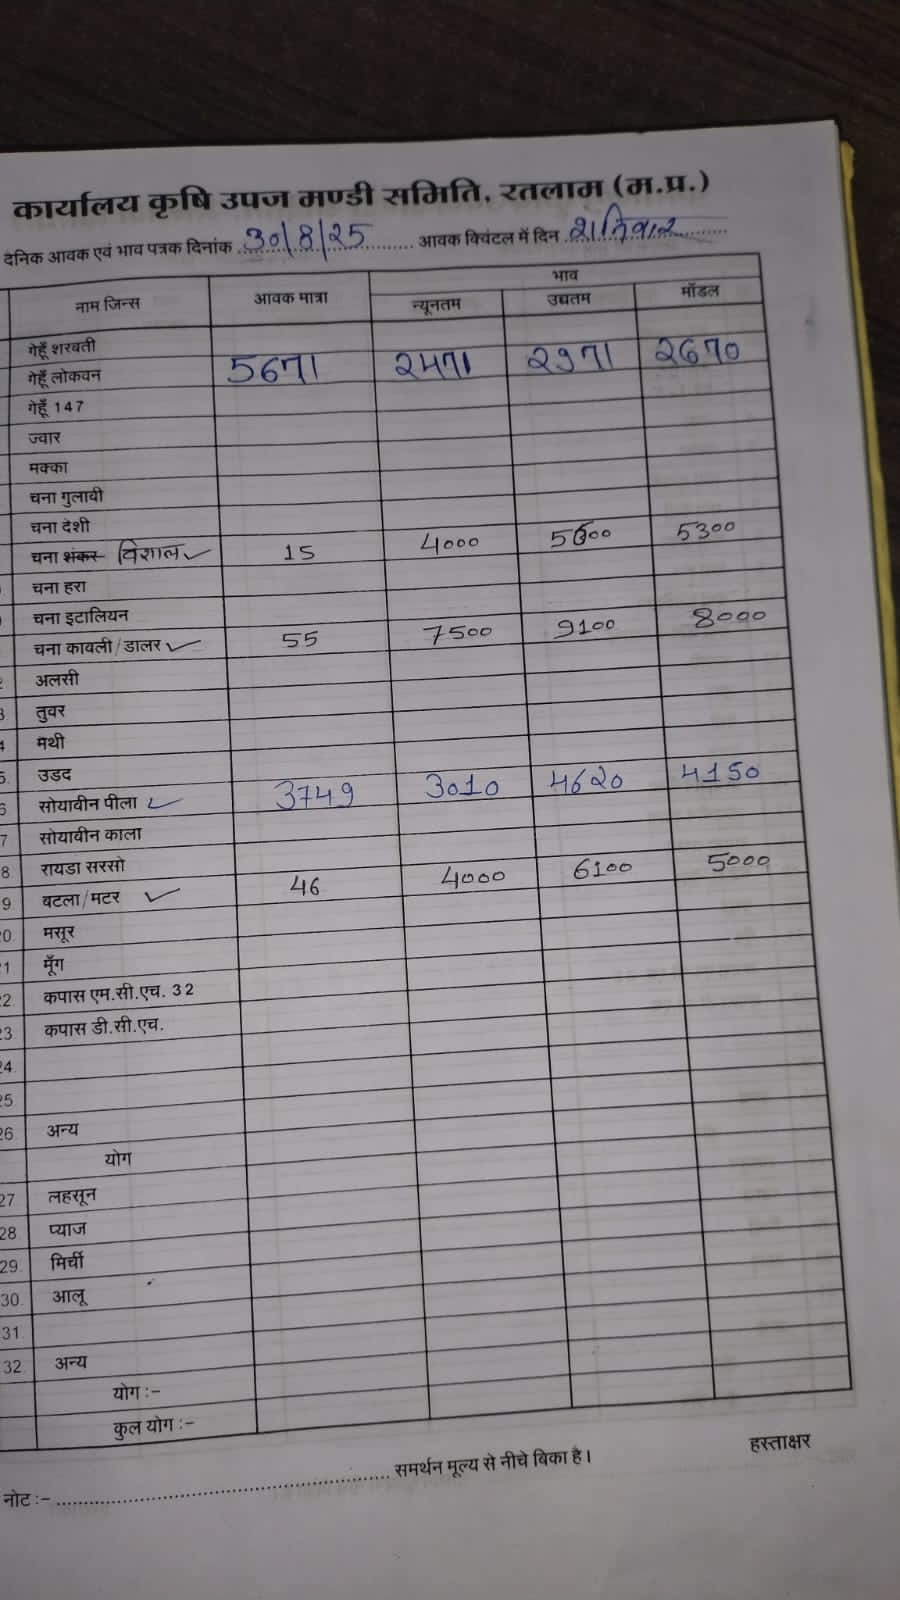 कार्यालय कृषि उपज मण्डी समिति, रतलाम (म.प्र.)
दैनिक आवक एवं भाव पत्रक दिनांक 30/8/25 आवक क्विंटल में दिन शनिवार
नाम जिन्स आवक मात्रा भाव
न्यूनतम उच्चतम मॉडल
गेहूँ शरवती
गेहूँ लोकवन 5671 2471 2971 2670
गेहूँ 147
ज्वार
मक्का
चना गुलावी
चना देशी
चना शंकर विशाल ✓ 15 4000 5600 5300
चना हरा
चना इटालियन
चना कावली/डालर ✓ 55 7500 9100 8000
अलसी
तुवर
मेथी
उडद
सोयावीन पीला ✓ 3749 3010 4620 4150
7 सोयावीन काला
8 रायडा सरसो
9 बटला/मटर ✓ 46 4000 6100 5000
0 मसूर
1 मूँग
2 कपास एम.सी.एच. 32
23 कपास डी.सी.एच.
24.
25
26 अन्य
योग
27 लहसून
28 प्याज
29. मिर्ची
30. आलू
31.
32 अन्य
योग :-
कुल योग :-
नोट :- .......... समर्थन मूल्य से नीचे बिका है। हस्ताक्षर